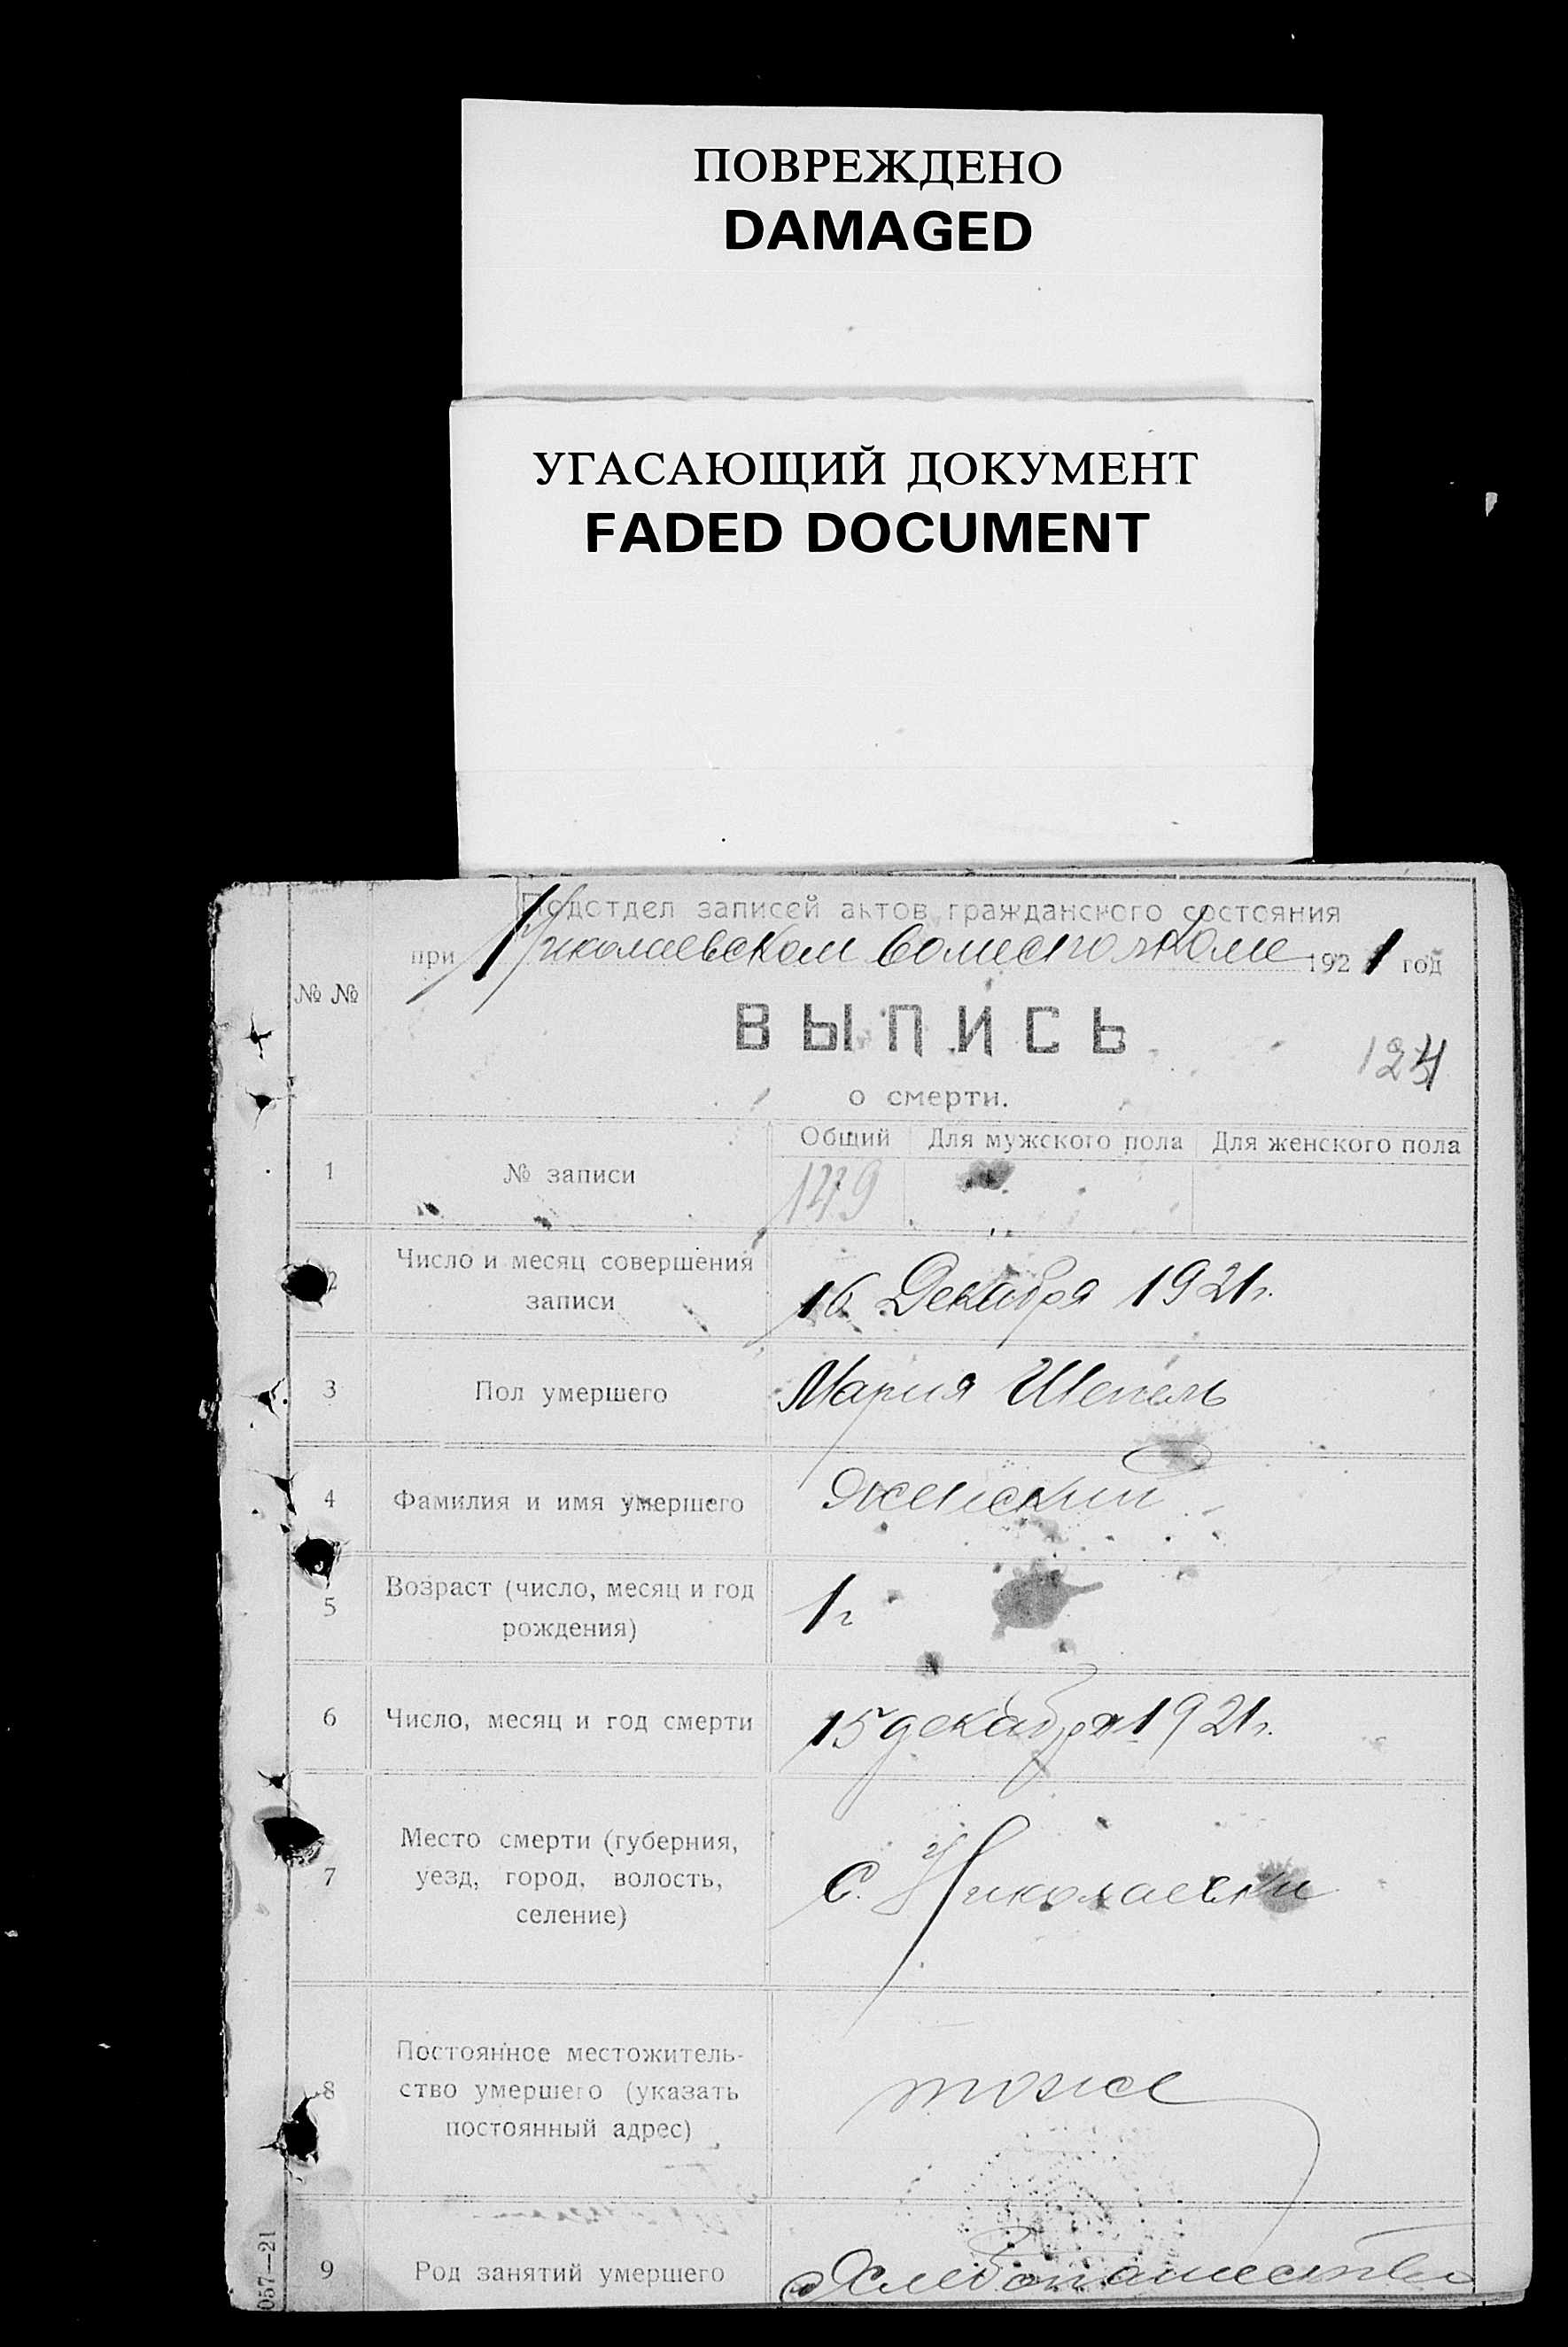 ПОВРЕЖДЕНО
DAMAGED
УГАСАЮЩИЙ ДОКУМЕНТ
FADED DOCUMENT
Подотдел записей актов гражданского состояния
при Николаевском Волисполкоме 1921 год
№ №
ВЫПИСЬ
124
о смерти.
Общий Для мужского пола Для женского пола
1 № записи 149
2 Число и месяц совершения
записи 16 Декабря 1921г.
3 Пол умершего Мария Шепель
4 Фамилия и имя умершего Женский
5 Возраст (число, месяц и год
рождения) 1 г
6 Число, месяц и год смерти 15 декабря 1921г.
7 Место смерти (губерния,
уезд, город, волость,
селение) С. Николаевки
8 Постоянное местожитель-
ство умершего (указать
постоянный адрес) тоже
9 Род занятий умершего Хлебопашество
057—21